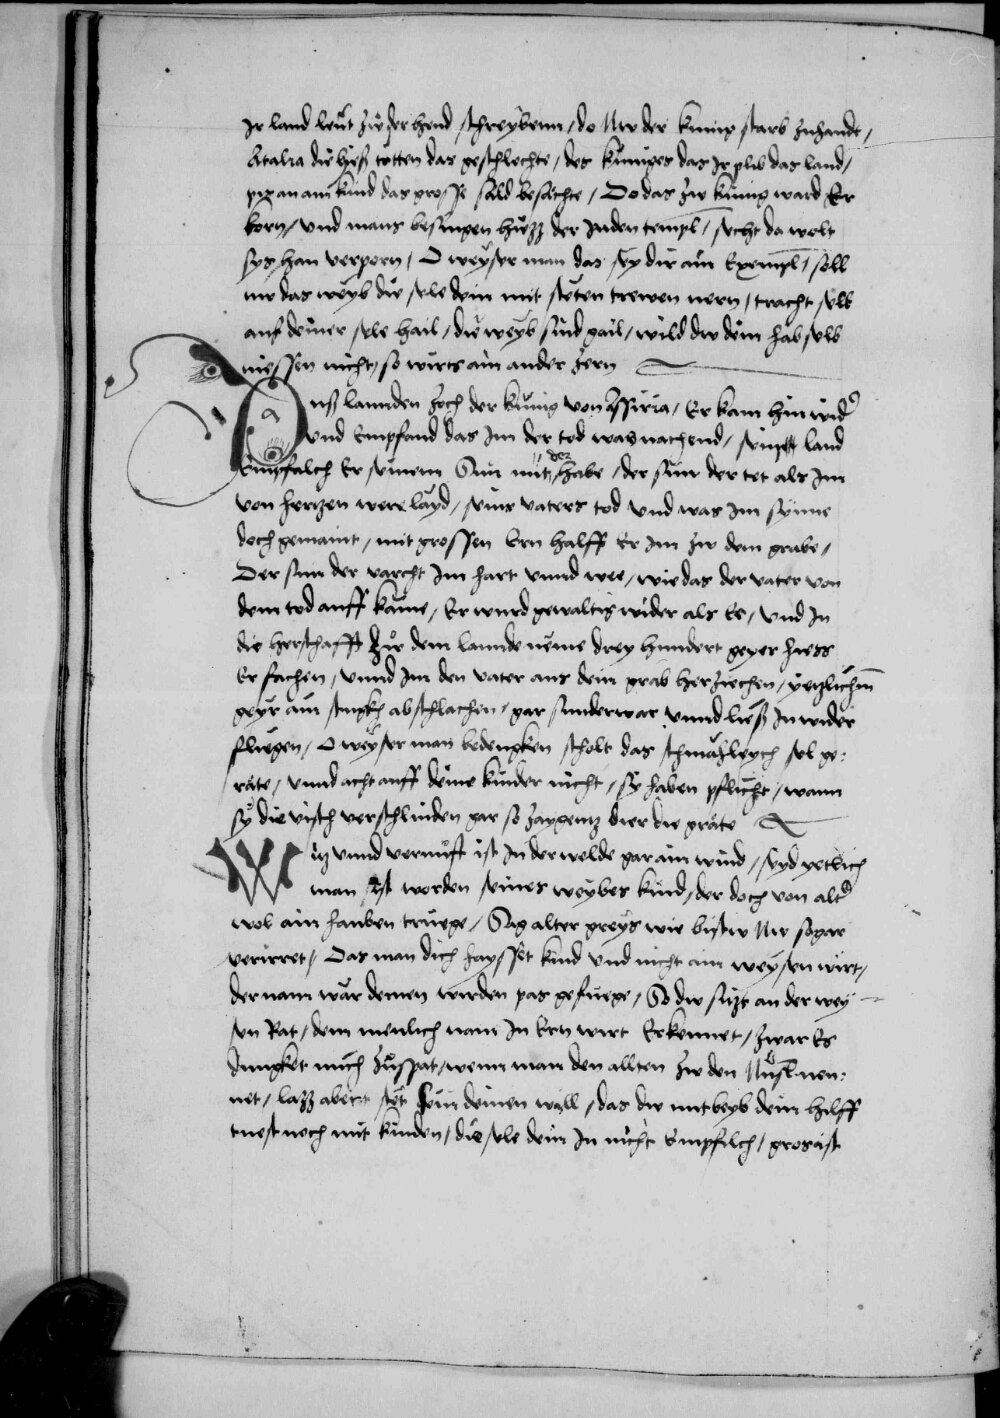 Ir land leüt zw der hend schreyben / do Nw der kunig starb zuhandt /
Atalia die hieß totten das geschlechte / des küniges das Ir plib das land /
piz an ain kind das grosse säld besächte / Do das zw künig ward Er
korn / vnd mans besungen hüezz der Juden templ / secht da wolt
sys han verporn / O weyser man das sey dir ain Exempl / soll
nw das weyb die sele dein mit stëten trewen nern / tracht selb
auf deiner sele hail / die weyb sind gail / wild dw dein hab selb
niessen nicht / so wirts ain ander zern
Auß lannden zoch der künig von Assiria / Er kam hin wider
vnd Empfand das Im der tod was nachend / seine land
Empfalch Er seinem Sun mit der habe / der sun der tet als Im
von herczen were layd / seins vaters tod vnd was Im synne
doch gemaint / mit grossen Ern halff Er Im zw dem grabe /
Der sun der varcht Im hart vnnd wee / wie das der vater von
dem tod auff käme / Er wurd gewaltig wider als Ee / vnd In
die herschafft zw dem lannde neme drey hundert geyer hiess
Er fachen / vnnd Im den vater aus dem grab herziechen / yetzlichem
geyr ain stugkh abschlachen / gar sunderwar vnnd ließ In wider
fliegen / O weyser man bedengken scholt das schmächleych sel ge:
räte / vnnd acht auff deine kinder nicht / sy haben pflicht / wann
sy die visch verschlinden gar so zaygentz dier die gräte
Witz vnnd vernuft ist In der welde gar ain wind / seyd yetlich
man Ist worden seines weybes kind / der doch von alter
wol ain hauben truege / Sag alter greys wie bistw Nw sogar
verirret / Das man dich haysset kind vnd nicht ain weysen wirt /
der nam wär deinen wirden pas gefuege / So dw sitzt an der wey
sen Rat / dein menlich nam In Ern wirt Erkennet / zwar Es
dungket mich zuspat / wenn man den allten zw den nen:
net / lazz aber stet sein deinen will / das dw mit weyb dein hilff
tuest noch mit kinden / die sele dein In nicht Empfilch / gros ist